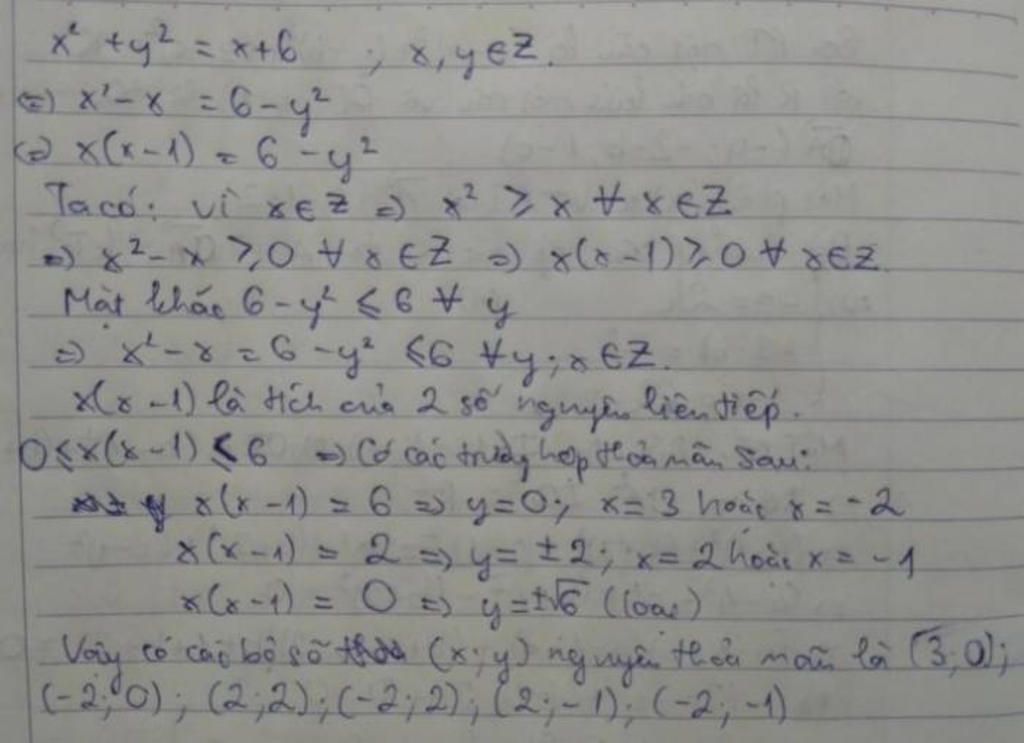 x² + y² = x + 6 ; x, y ∈ Z.
(=) x² - x = 6 - y²
(=) x(x - 1) = 6 - y²
Ta có: vì x ∈ Z => x² ⩾ x ∀ x ∈ Z
=> x² - x ⩾ 0 ∀ x ∈ Z => x(x - 1) ⩾ 0 ∀ x ∈ Z
Mặt khác 6 - y² ⩽ 6 ∀ y
=> x² - x = 6 - y² ⩽ 6 ∀ y; x ∈ Z.
x(x - 1) là tích của 2 số nguyên liên tiếp.
0 ⩽ x(x - 1) ⩽ 6 => Có các trường hợp thoả mãn sau:
x(x - 1) = 6 => y = 0; x = 3 hoặc x = -2
x(x - 1) = 2 => y = ±2; x = 2 hoặc x = -1
x(x - 1) = 0 => y = ±√6 (loại)
Vậy có các bộ số (x; y) nguyên thoả mãn là (3; 0);
(-2; 0); (2; 2); (-2; 2); (2; -1); (-2; -1)